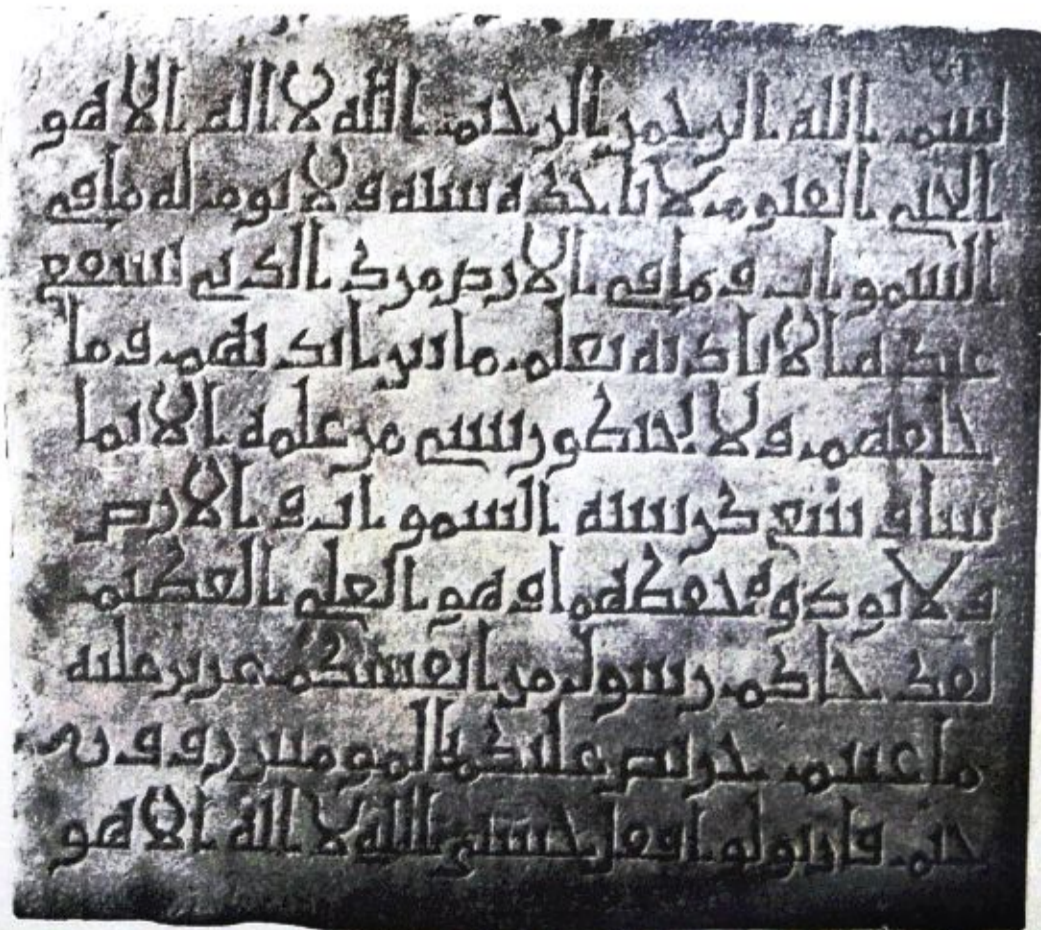 بسم الله الرحمن الرحيم الله لا اله الا هو
الحي القيوم لا تاخذه سنه ولا نوم له ما في
السموات وما في الارض من ذا الذي يشفع
عنده الا باذنه يعلم ما بين ايديهم وما
خلفهم ولا يحيطون بشي من علمه الا بما
شا وسع كرسيه السموات والارض
ولا يوده حفظهما وهو العلي العظيم
لقد جاكم رسول من انفسكم عزيز عليه
ما عنتم حريص عليكم بالمومنين روف ر
حيم فان تولوا فقل حسبي الله لا اله الا هو